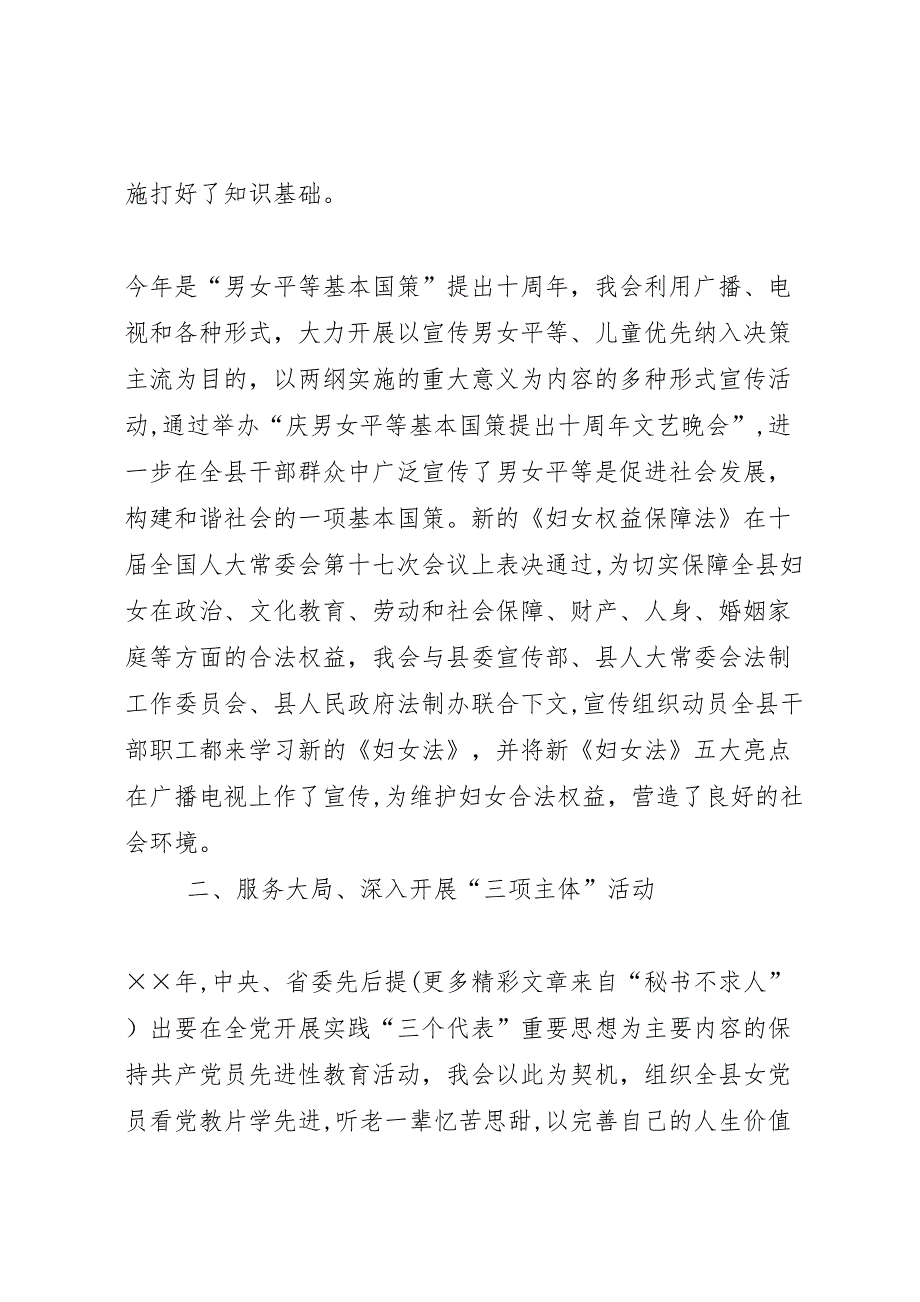 施打好了知识基础。
今年是“男女平等基本国策”提出十周年，我会利用广播、电
视和各种形式，大力开展以宣传男女平等、儿童优先纳入决策
主流为目的，以两纲实施的重大意义为内容的多种形式宣传活
动,通过举办“庆男女平等基本国策提出十周年文艺晚会”,进
一步在全县干部群众中广泛宣传了男女平等是促进社会发展，
构建和谐社会的一项基本国策。新的《妇女权益保障法》在十
届全国人大常委会第十七次会议上表决通过,为切实保障全县妇
女在政治、文化教育、劳动和社会保障、财产、人身、婚姻家
庭等方面的合法权益，我会与县委宣传部、县人大常委会法制
工作委员会、县人民政府法制办联合下文,宣传组织动员全县干
部职工都来学习新的《妇女法》，并将新《妇女法》五大亮点
在广播电视上作了宣传,为维护妇女合法权益，营造了良好的社
会环境。
二、服务大局、深入开展“三项主体”活动
××年,中央、省委先后提(更多精彩文章来自“秘书不求人”
）出要在全党开展实践“三个代表”重要思想为主要内容的保
持共产党员先进性教育活动，我会以此为契机，组织全县女党
员看党教片学先进,听老一辈忆苦思甜,以完善自己的人生价值